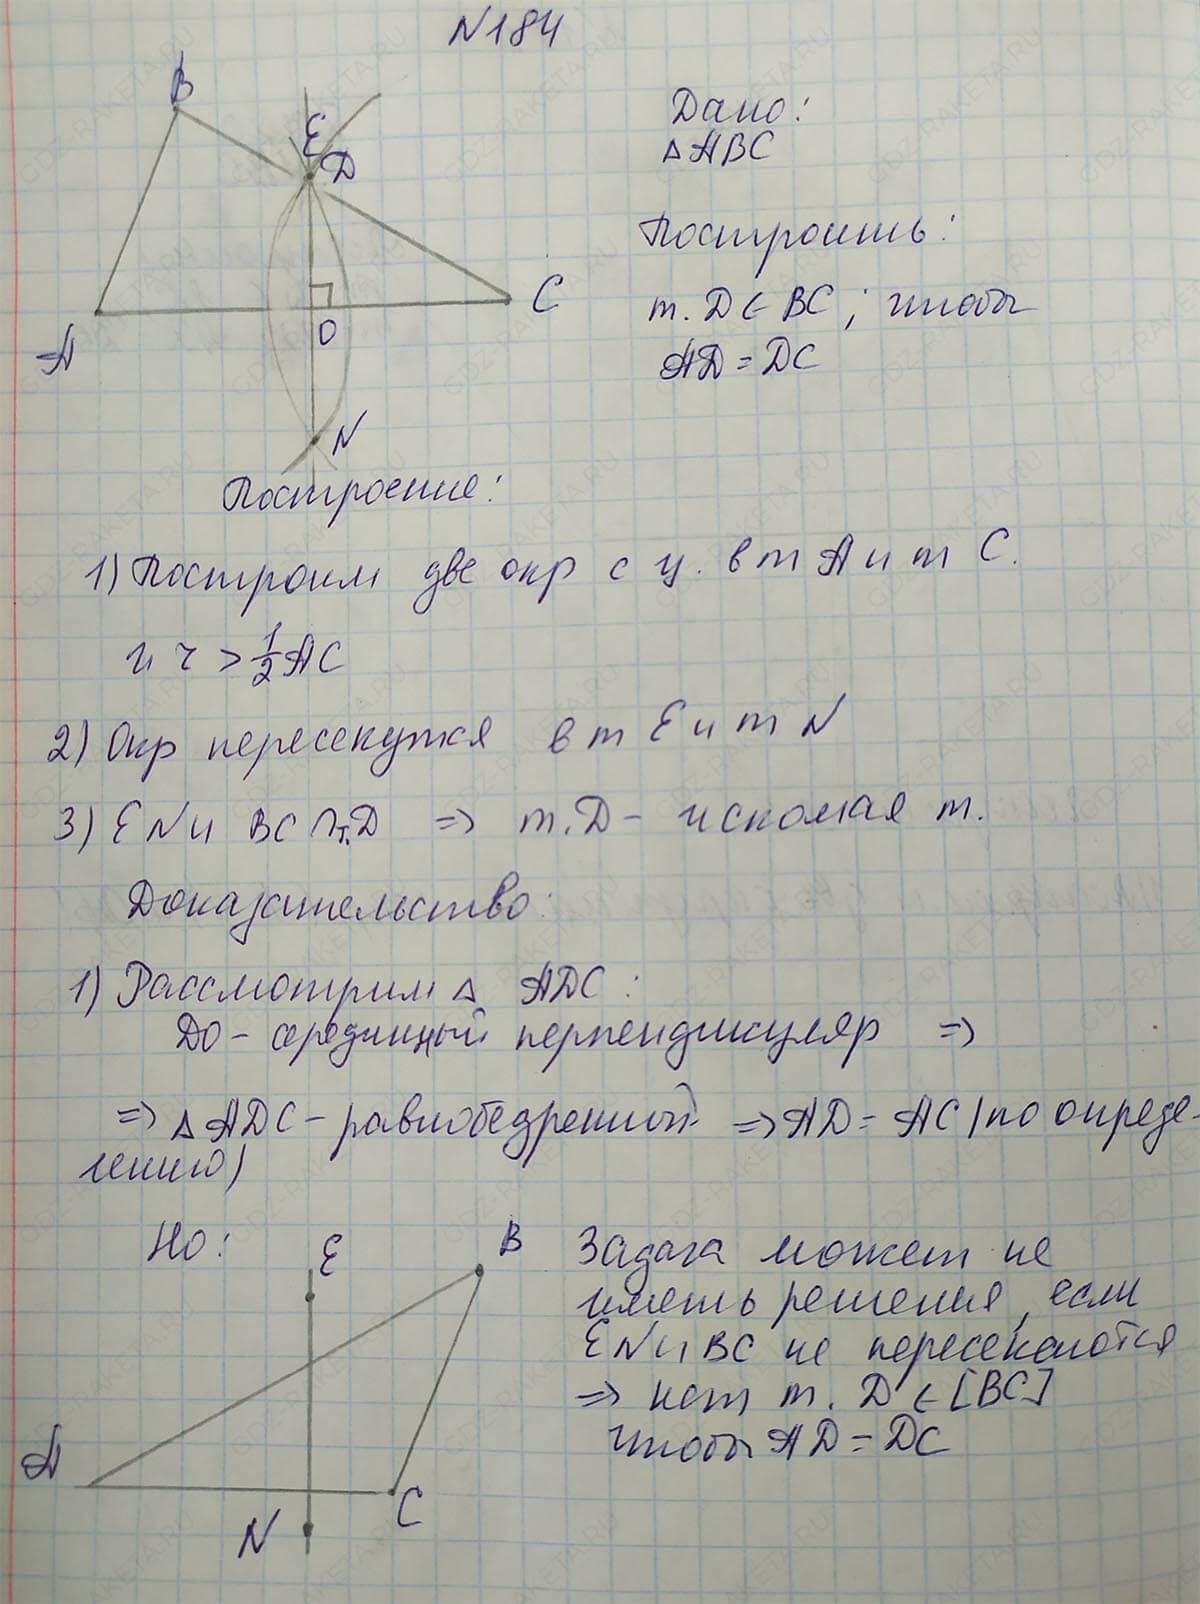 N184
B
E
D
O
A
C
N
Дано:
△ABC
Построить:
т. D ∈ BC; чтобы
AD = DC
Построение:
1) Построим две окр с ц. в т A и т C.
и r > 1/2 AC
2) Окр пересекутся в т E и т N
3) EN и BC ∩ т. D => т. D - искомая т.
Доказательство:
1) Рассмотрим △ ADC:
DO - серединный перпендикуляр =>
=> △ADC - равнобедренный => AD = AC (по опреде-
лению)
Но:
E
B
A
C
N
Задача может не
иметь решения, если
EN и BC не пересекаются
=> нет т. D ∈ [BC]
чтобы AD = DC